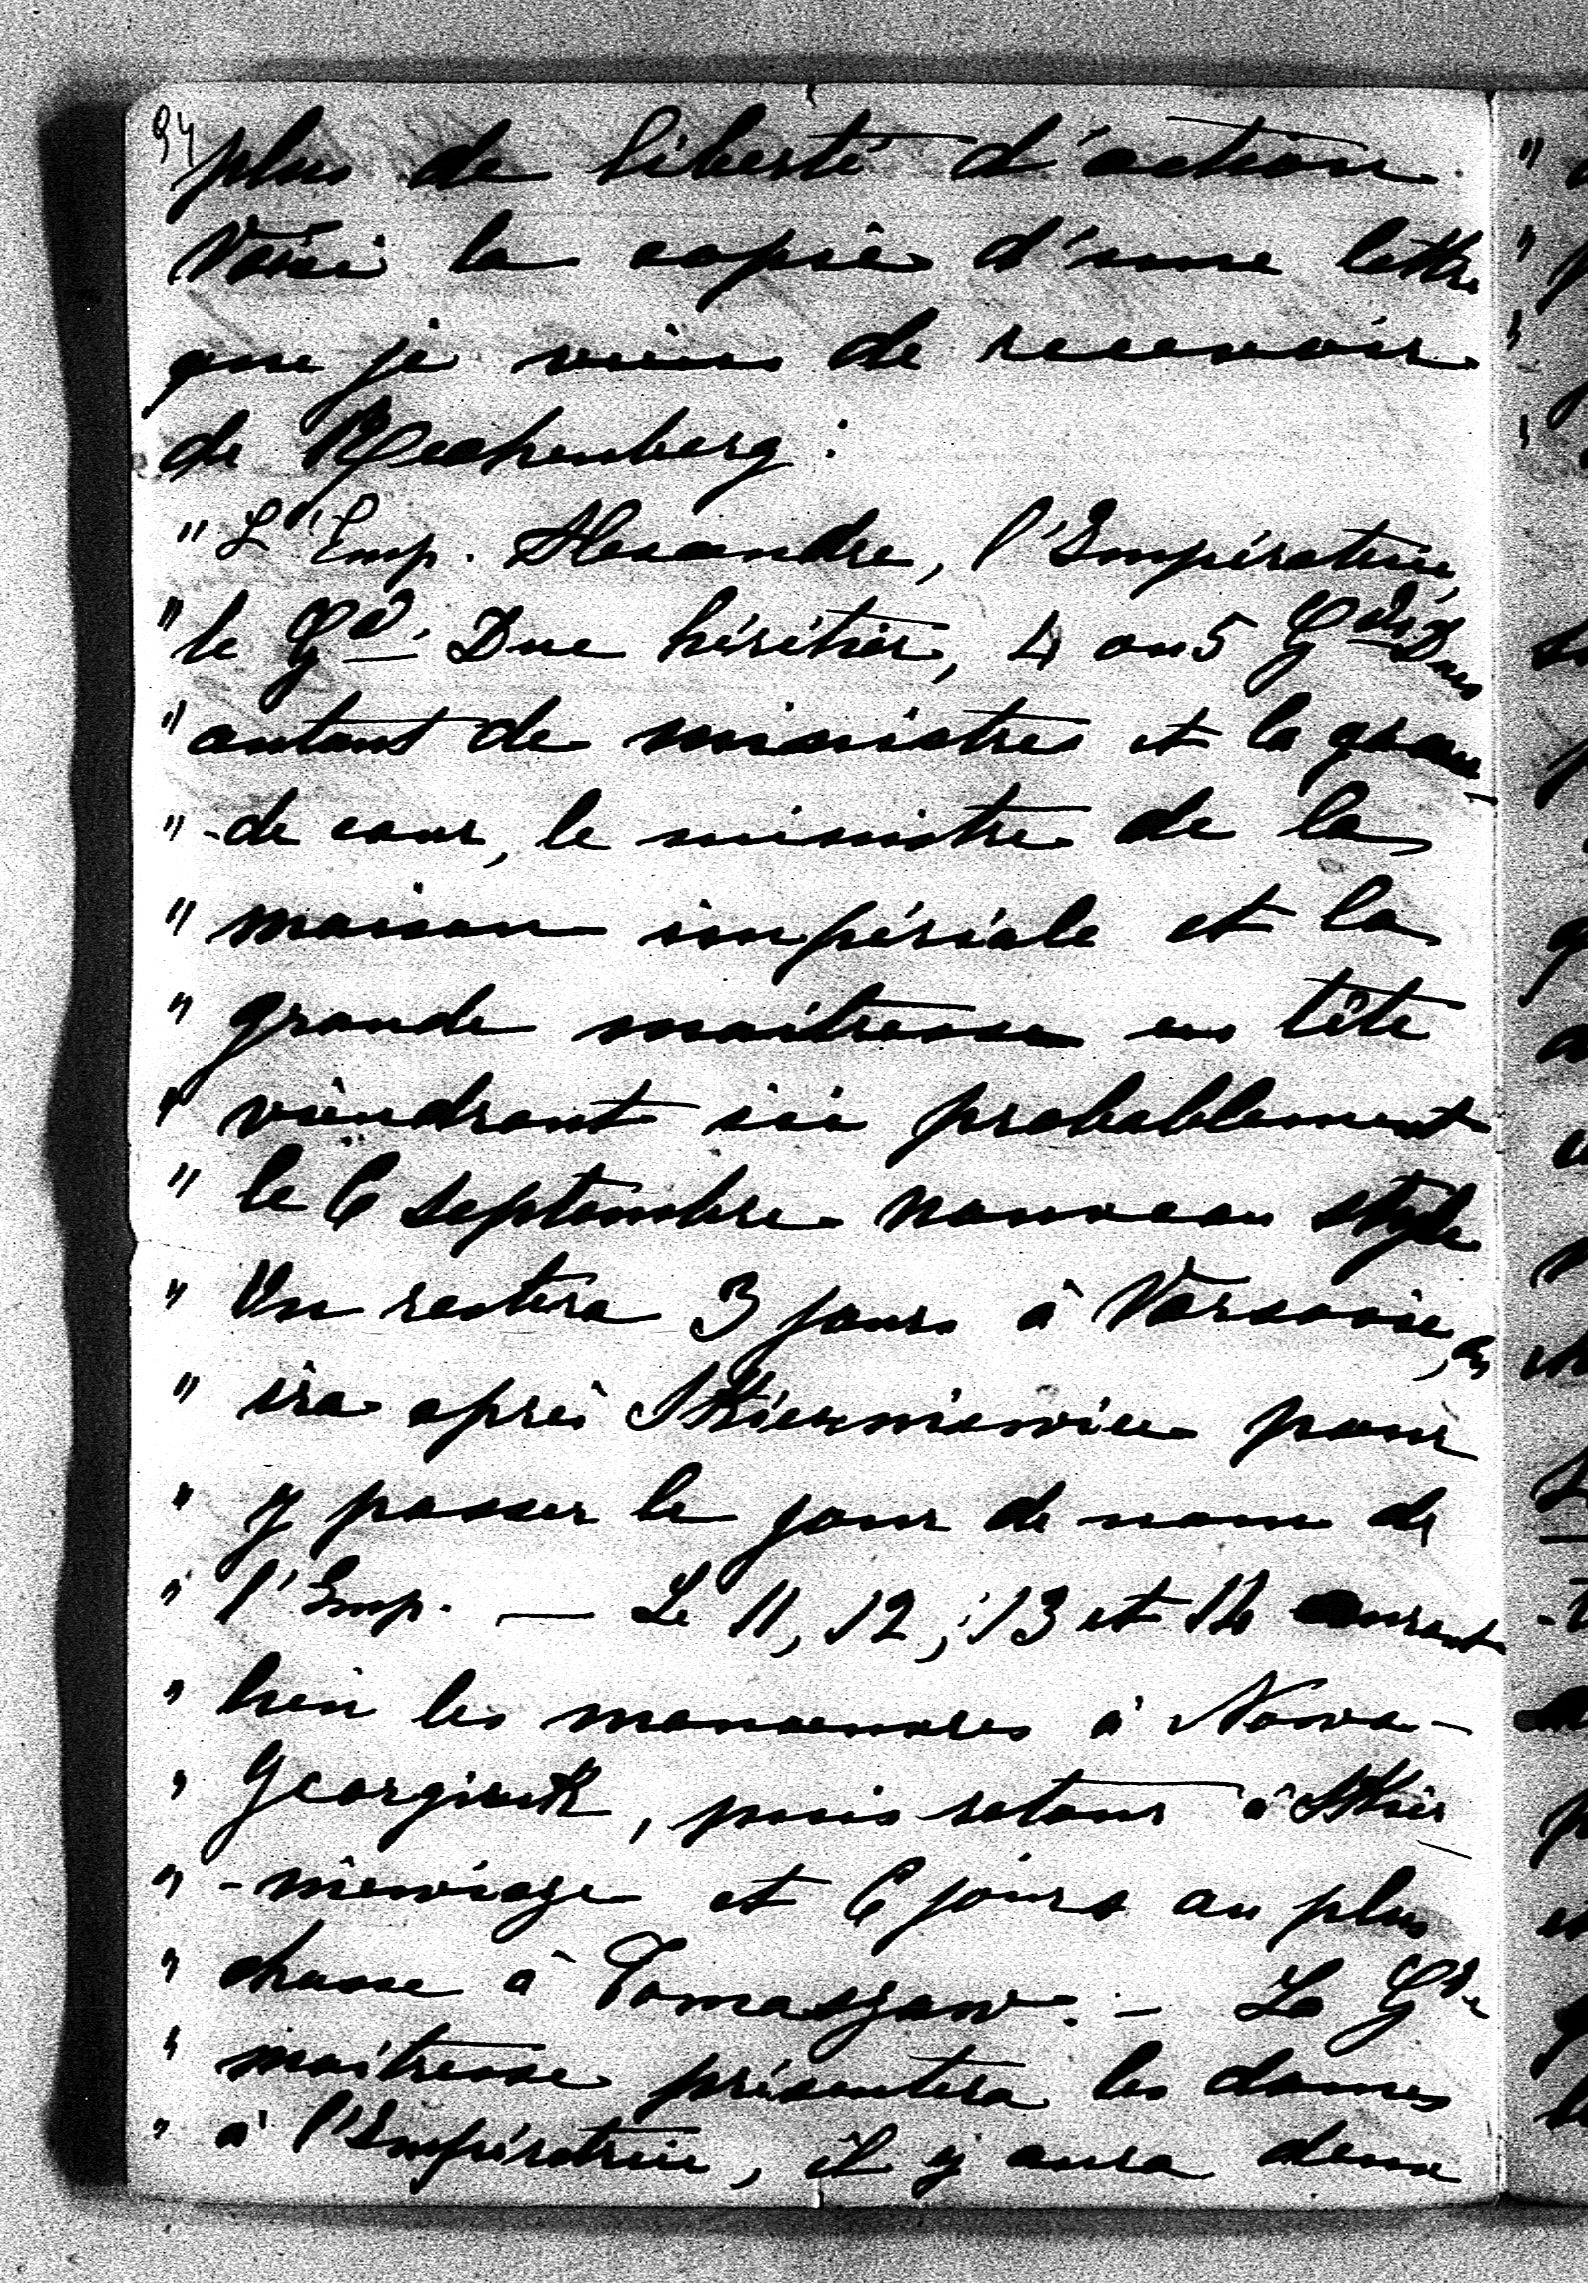 94
plus de liberté d'action.
Voici la copie d'une lettre
que je viens de recevoir
de Rechenberg:
"L'Emp. Alexandre, l'Impératrice,
"le Gd. Duc héritier, 4 ou 5 Gds Ducs
"autant de ministres et la gran-
"-de cour, le ministre de la
"maison impériale et la
"grande maitresse en tête
"viendront ici probablement
"le 6 septembre nouveau style
"On restera 3 jours à Varsovie, on
"ira après Skierniewice pour
"y passer le jour de nom de
"l'Emp. — Le 11, 12, 13 et 14 auront
"lieu les manoeuvres à Nowa-
"Georgiewsk, puis retour à Skier
"-niewize et 6 jours au plus
"chasse à Tomaszow. — La Gde
"maitresse présentera les dames
"à l'Impératrice, il y aura deux